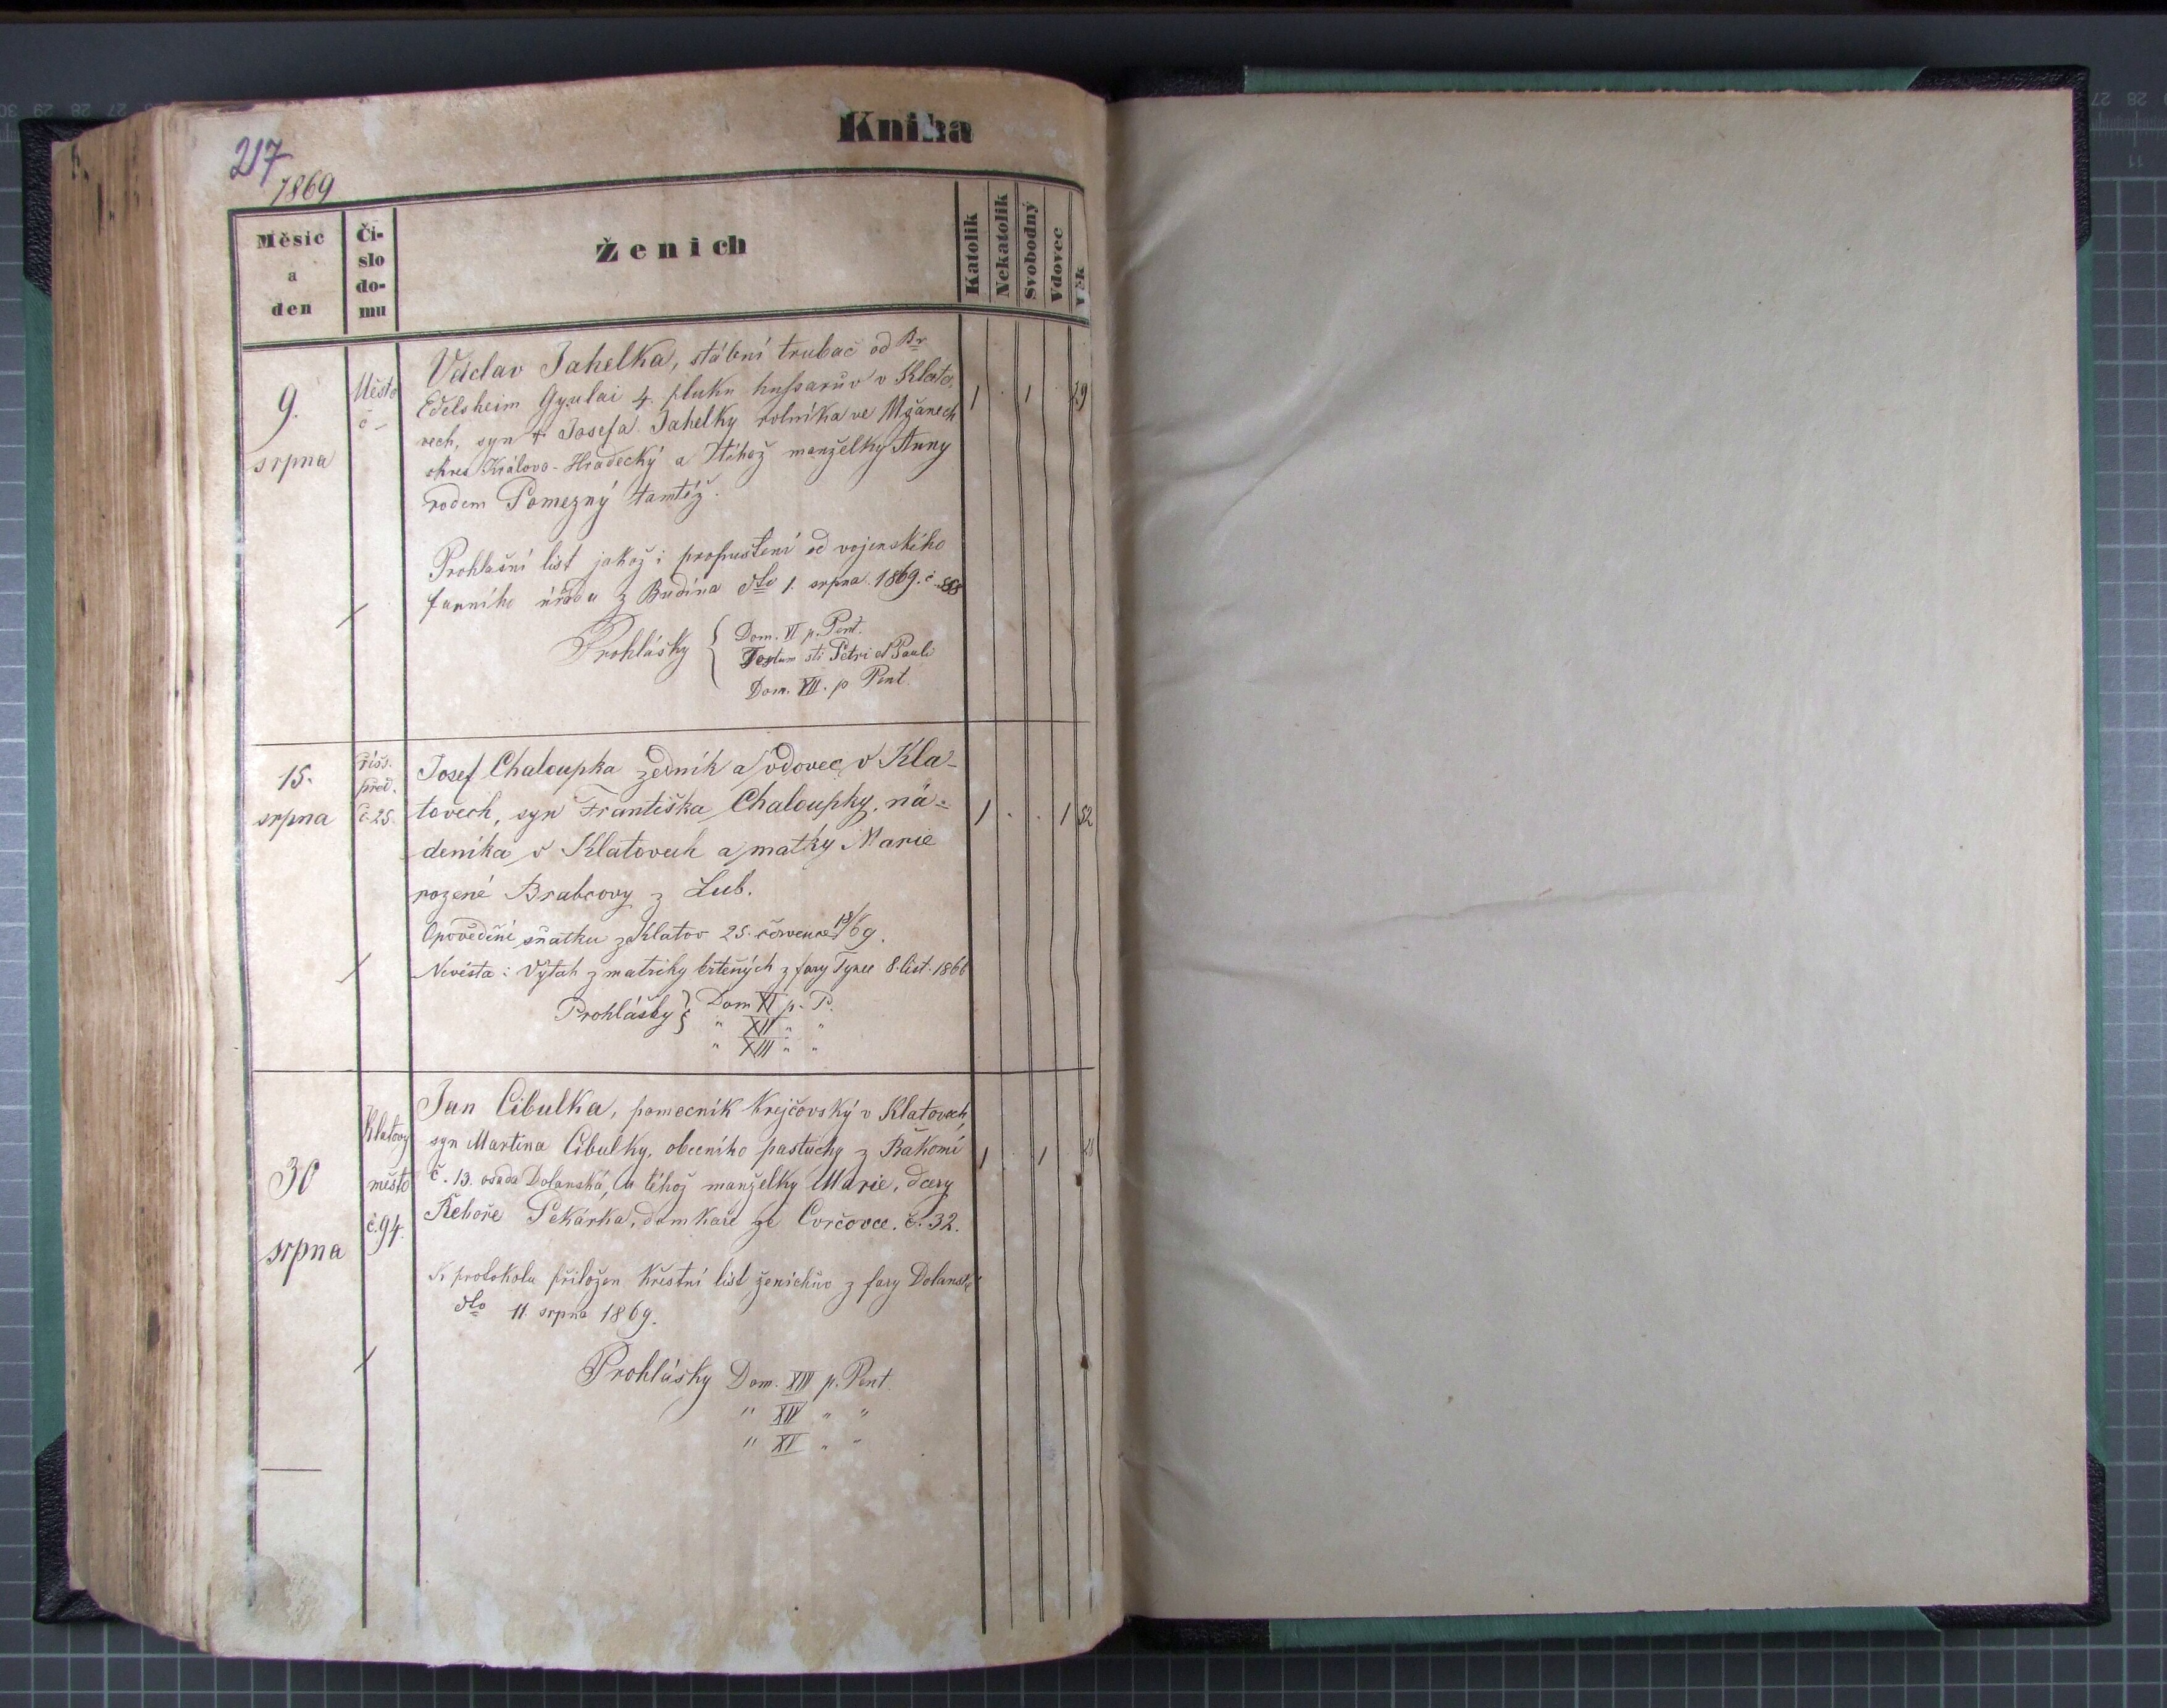 Kniha
217
1869
Měsíc
a
den
Čí-
slo
do-
mu
Ženich
Katolík
Nekatolík
Svobodný
Vdovec
Věk
9.
srpna
Město
č –
Václav Jahelka, stábní trubač od Br
Edelsheim Gyulai 4. pluku hussarův v Klato,
vech, syn + Josefa Jahelky rolníka ve Mžanech
okres Králové-Hradecký a téhož manželky Anny
rodem Pomezný tamtéž.
1 . 1 . 29
Prohlašní list jakož i propuštění od vojenského
farního úřadu z Budína dto 1. srpna 1869. č.
Prohlášky { Dom. VI p. Pent.
Festum sti Petri et Pauli
Dom. VII. p Pent.
15.
srpna
říšs.
před.
č. 25.
Josef Chaloupka zedník a vdovec v Kla-
tovech, syn Františka Chaloupky, ná-
deníka v Klatovech a matky Marie
rozené Brabcovy z Lub.
1 . . 1 52
Opovědění sňatku z Klatov 25. července 18/69.
Nevěsta: Výtah z matriky křtěných z fary Týnec 8. list. 1866
Prohlášky } Dom XI p. P.
" XII " "
" XIII " "
30
srpna
Klatovy
město
č. 94.
Jan Cibulka, pomocník krejčovský v Klatovech,
syn Martina Cibulky, obecního pastuchy z Bakomí
č. 13. osada Dolanská, a téhož manželky Marie, dcery
Řehoře Pekárka, domkáře ze Cvrčovce. č. 32.
1 . 1
K protokolu přiložen křestní list ženichův z fary Dolanské
dto 11. srpna 1869.
Prohlášky Dom. XIII p. Pent.
" XIV " "
" XV " "